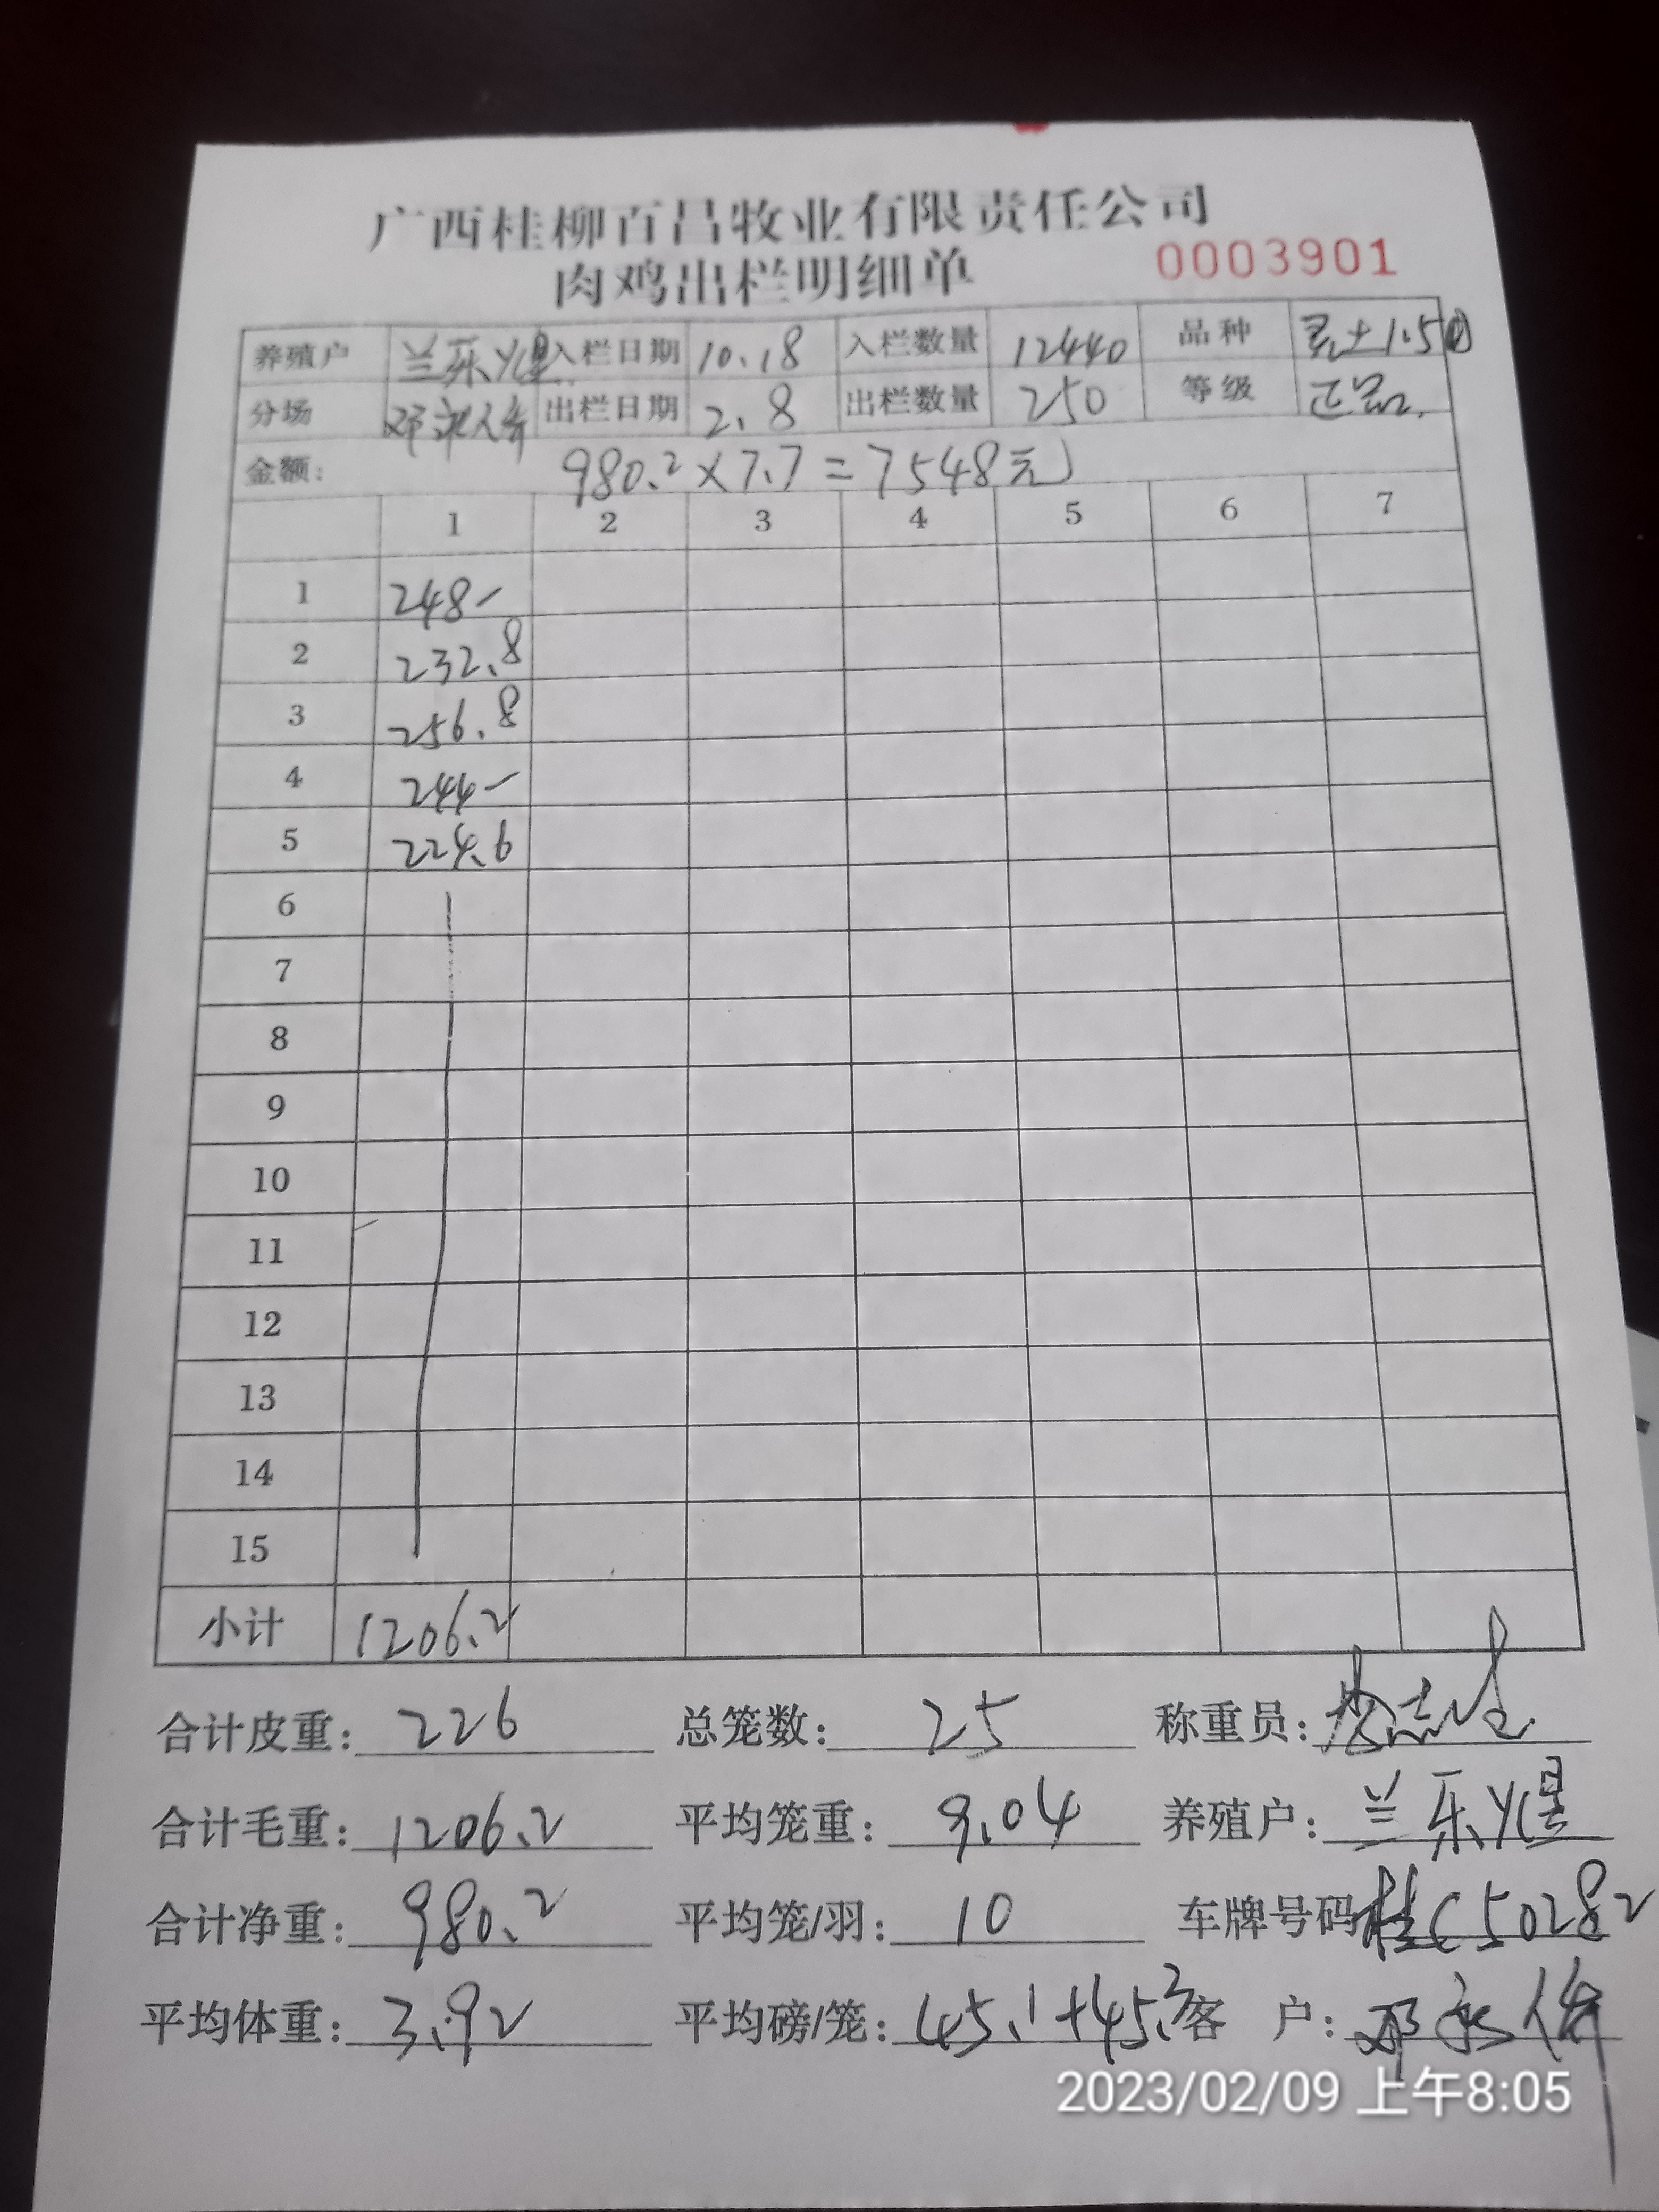 广西桂柳百昌牧业有限责任公司
肉鸡出栏明细单 0003901
养殖户 兰乐煜 入栏日期 10.18 入栏数量 12440 品种 土1.5
分场 邓永俊 出栏日期 2.8 出栏数量 250 等级 正品
金额: 980.2×7.7=7548元
1 2 3 4 5 6 7
1 248-
2 232.8
3 256.8
4 244-
5 224.6
6
7
8
9
10
11
12
13
14
15
小计 1206.2
合计皮重: 226 总笼数: 25 称重员:
合计毛重: 1206.2 平均笼重: 9.04 养殖户: 兰乐煜
合计净重: 980.2 平均笼/羽: 10 车牌号码 桂C50282
平均体重: 3.92 平均磅/笼: 45.1+45.3 客 户: 邓永俊
2023/02/09 上午8:05